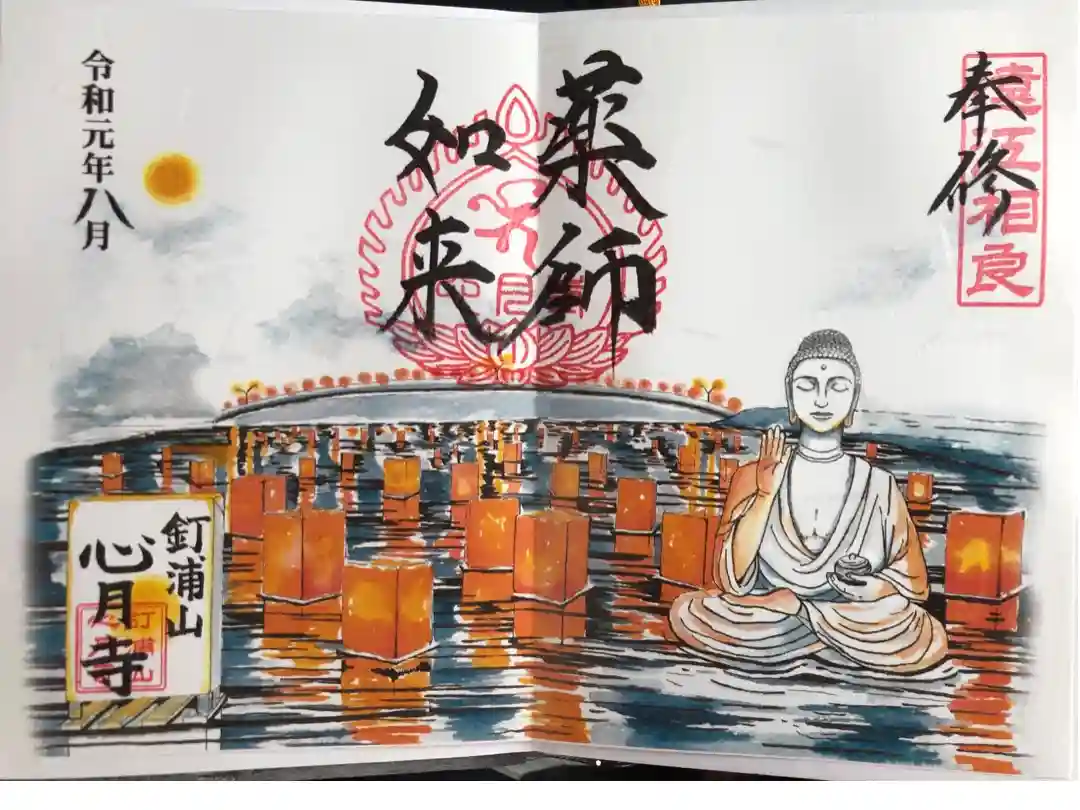 奉修
遠江相良
薬師
如来
令和元年八月
釘浦山
心月寺